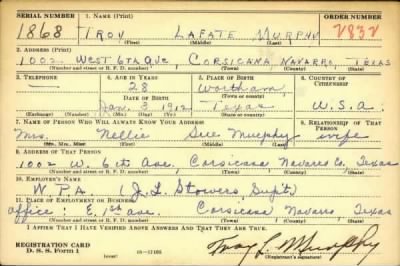 SERIAL NUMBER 1. NAME (Print) ORDER NUMBER
1868 TROY LAFATE MURPHY V832
(First) (Middle) (Last)
2. ADDRESS (Print)
1002 WEST 6TH AVE, CORSICANA, NAVARRO, TEXAS
(Number and street or R. F. D. number) (Town) (County) (State)
3. TELEPHONE 4. AGE IN YEARS 5. PLACE OF BIRTH 6. COUNTRY OF CITIZENSHIP
— 28 Wortham
DATE OF BIRTH (Town or county)
Jan. 3 1912 Texas U.S.A.
(Exchange) (Number) (Mo.) (Day) (Yr.) (State or country)
7. NAME OF PERSON WHO WILL ALWAYS KNOW YOUR ADDRESS 8. RELATIONSHIP OF THAT PERSON
Mrs. Nellie Sue Murphy wife
(Mr., Mrs., Miss) (First) (Middle) (Last)
9. ADDRESS OF THAT PERSON
1002 W. 6th Ave. Corsicana Navarro Co. Texas
(Number and street or R. F. D. number) (Town) (County) (State)
10. EMPLOYER'S NAME
W.P.A. (J.L. Stowers, Supt.)
11. PLACE OF EMPLOYMENT OR BUSINESS
office: E. 1st ave. Corsicana Navarro Texas
(Number and street or R. F. D. number) (Town) (County) (State)
I AFFIRM THAT I HAVE VERIFIED ABOVE ANSWERS AND THAT THEY ARE TRUE.
REGISTRATION CARD
D. S. S. Form 1 (over) Troy L Murphy
(Registrant's signature)